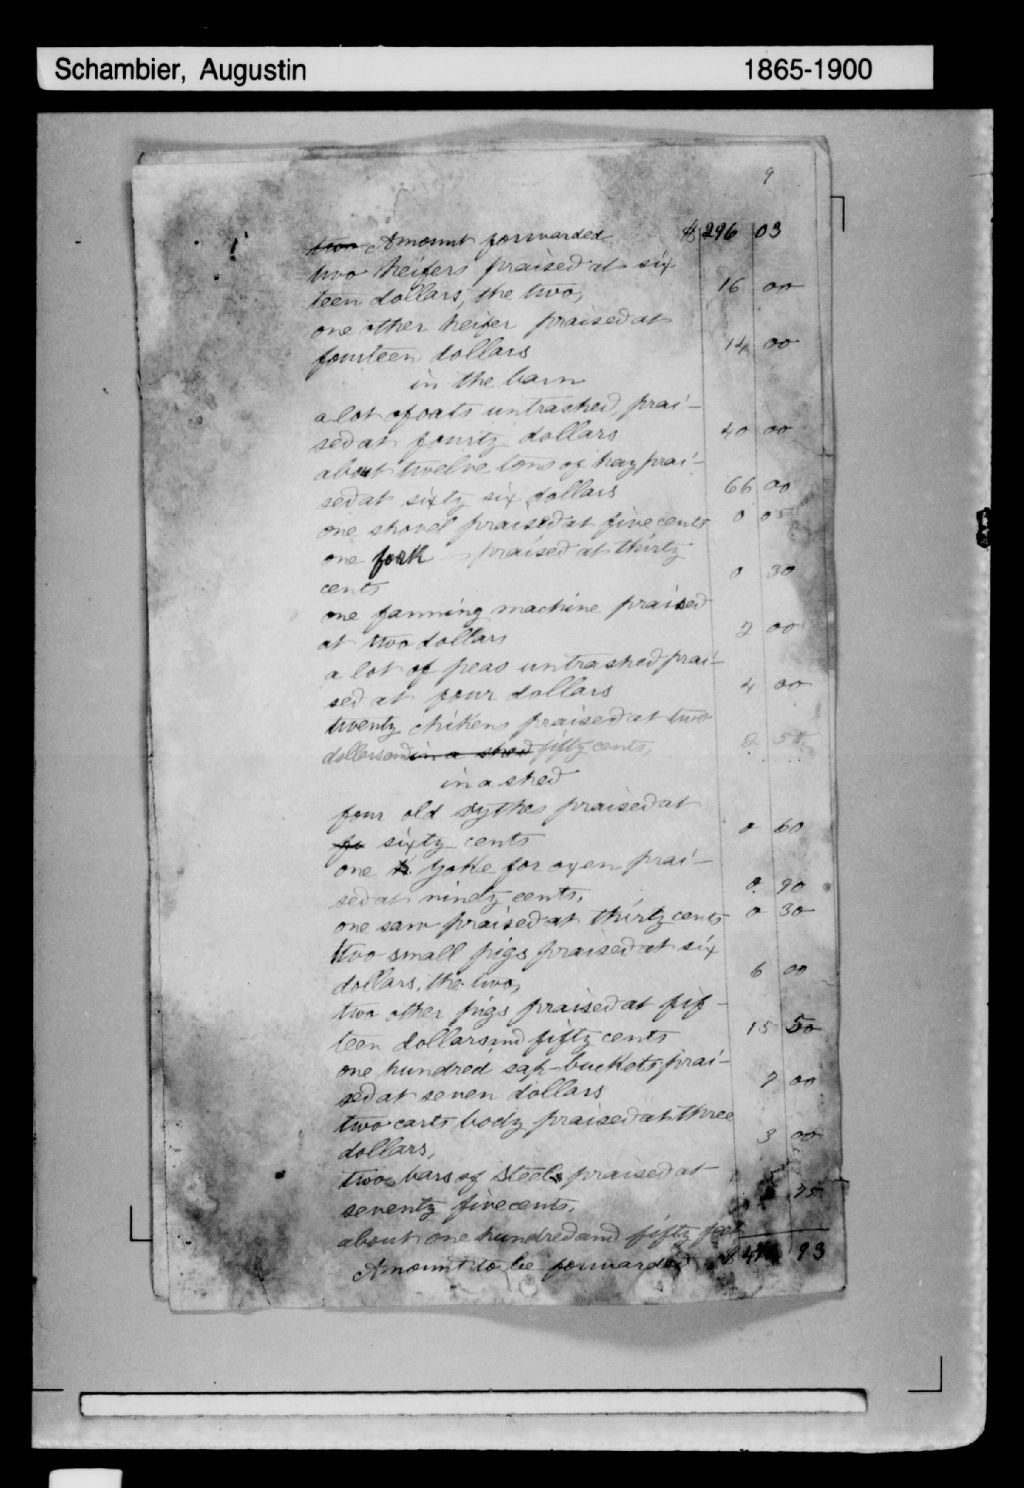 Schambier, Augustin 1865-1900
9
two Amount forwarded $ 296 03
two heifers praised at six
teen dollars, the two, 16 00
one other heifer praised at
fourteen dollars 14 00
in the barn
a lot of oats untrashed, prai-
sed at fourty dollars 40 00
about twelve tons of hay prai-
sed at sixty six dollars 66 00
one shovel praised at five cents 0 05
one fork praised at thirty
cents 0 30
one fanning machine praised
at two dollars 2 00
a lot of peas untrashed prai-
sed at four dollars 4 00
twenty chikens praised at two
dollars and in a shed fifty cents, 2 50
in a shed
four old sythes praised at
fo sixty cents 0 60
one yoke for oxen prai-
sed at ninety cents, 0 90
one saw praised at thirty cents 0 30
two small pigs praised at six
dollars, the two, 6 00
two other pigs praised at fif-
teen dollars and fifty cents 15 50
one hundred sap-buckets prai-
sed at seven dollars 7 00
two carts body praised at three
dollars, 3 00
two bars of steel praised at
seventy five cents, 75
about one hundred and fifty feet
Amount to be forwarded $ 93